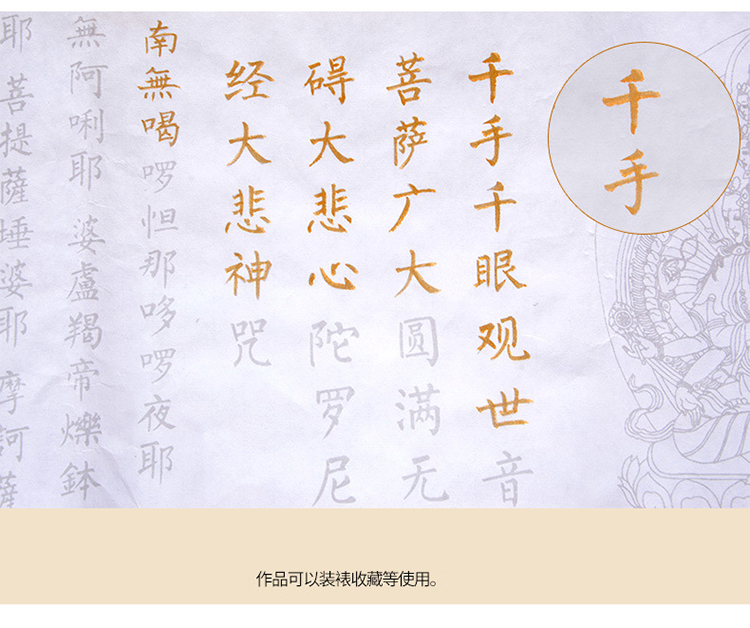 千手
千手千眼观世音
菩萨广大圆满无
碍大悲心陀罗尼
经大悲神咒
南無喝啰怛那哆啰夜耶
無阿唎耶 婆盧羯帝爍鉢
耶 菩提薩埵婆耶 摩訶薩
作品可以装裱收藏等使用。